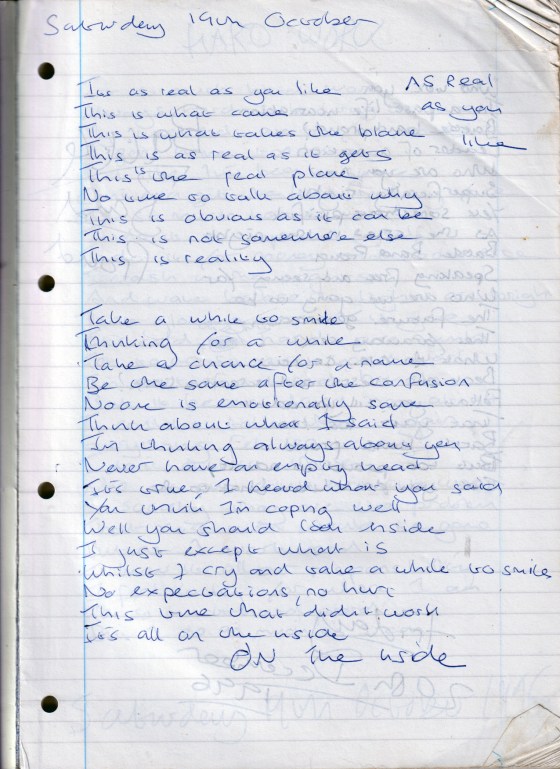 Saturday 19th October
Its as real as you like
As Real
as you
like
This is what came
This is what takes the blame
This is as real as it gets
This is the real plane
No time to talk about why
This is obvious as it can be
This is not somewhere else
This is reality
Take a while to smile
Thinking for a while
Take a chance for a name
Be the same after the confusion
Noone is emotionally same
Think about what I said
I'm thinking always about you
Never have an empty head
It's true, I heard what you said
You think I'm coping well
Well you should look inside
I just except what is
Whilst I cry and take a while to smile
No expectations, no hurt
This time that didn't work
It's all on the inside
ON The inside